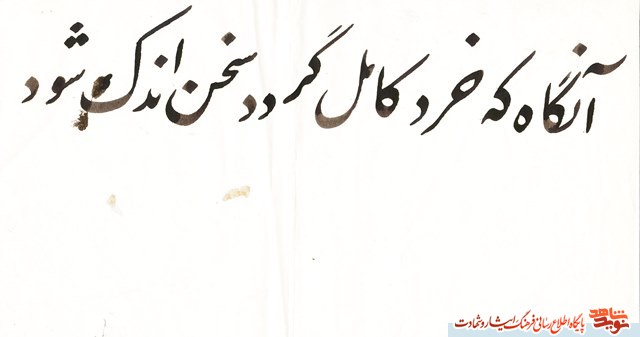 آنگاه که خرد کامل گردد سخن اندک شود
نوید شاهد
پایگاه اطلاع رسانی فرهنگ ایثار و شهادت